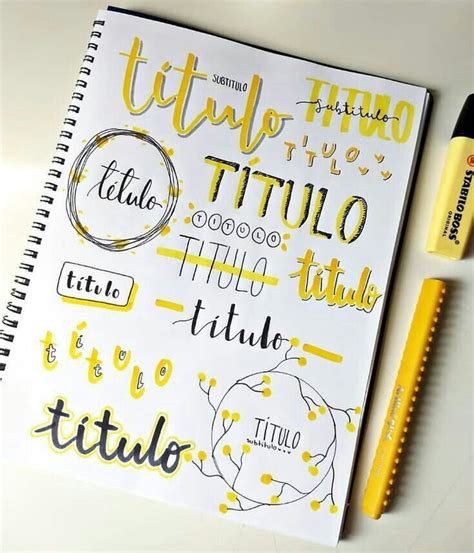 título
SUBTITULO
TÍTULO
subtitulo
TÍTULO
título
TÍTULO
TITULO
TITULO
título
título
título
título
título
TÍTULO
subtitulo
STABILO BOSS
ORIGINAL